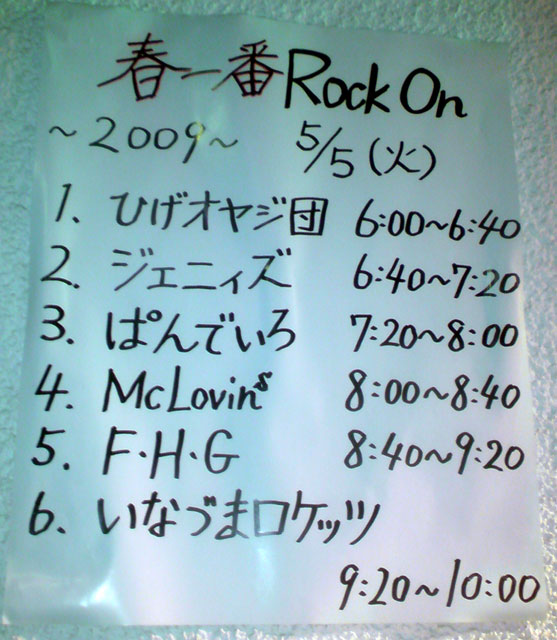 春一番 Rock On
～2009～ 5/5(火)
1. ひげオヤジ団 6:00～6:40
2. ジェニィズ 6:40～7:20
3. ぱんでいろ 7:20～8:00
4. McLovin's 8:00～8:40
5. F・H・G 8:40～9:20
6. いなづまロケッツ
9:20～10:00